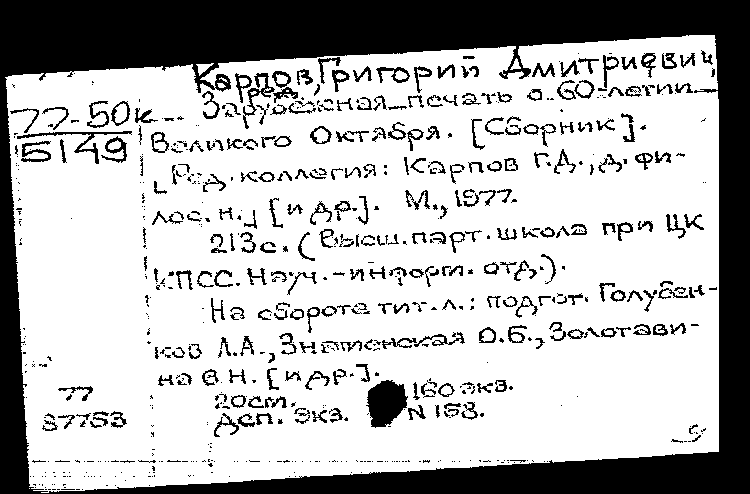 Карпов, Григорий Дмитриевич,
ред.
77-50к Зарубежная печать о 60-летии
5149 Великого Октября. [Сборник].
[Ред. коллегия: Карпов Г.Д., д. фи-
лос. н.] [и др.]. М., 1977.
213 с. (Высш. парт. школа при ЦК
КПСС. Науч.-информ. отд.).
На обороте тит. л.: подгот. Голубен-
ков Л.А., Знаменская О.Б., Золотави-
на В.Н. [и др.].
77 20 см. 160 экз.
87753 Дсп. Экз. N 158.